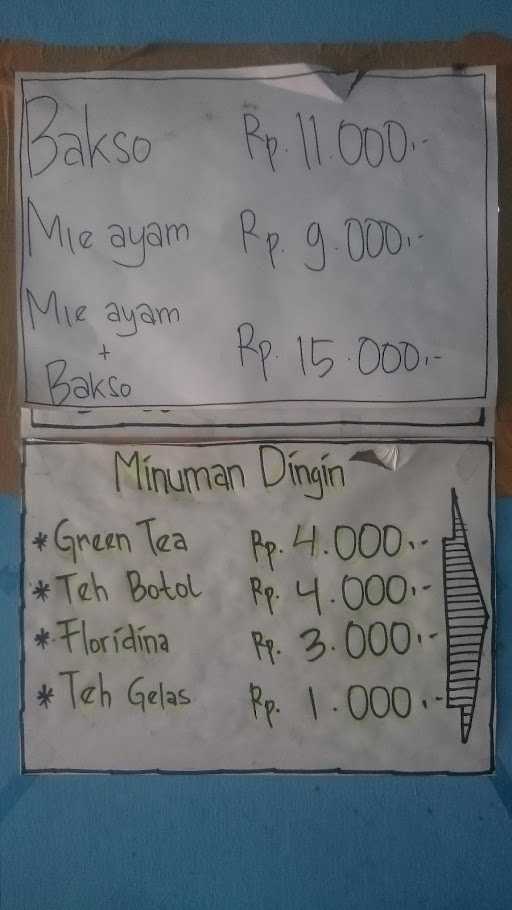 Bakso Rp. 11.000,-
Mie ayam Rp. 9.000,-
Mie ayam
+
Bakso Rp. 15.000,-
Minuman Dingin
* Green Tea Rp. 4.000,-
* Teh Botol Rp. 4.000,-
* Floridina Rp. 3.000,-
* Teh Gelas Rp. 1.000,-